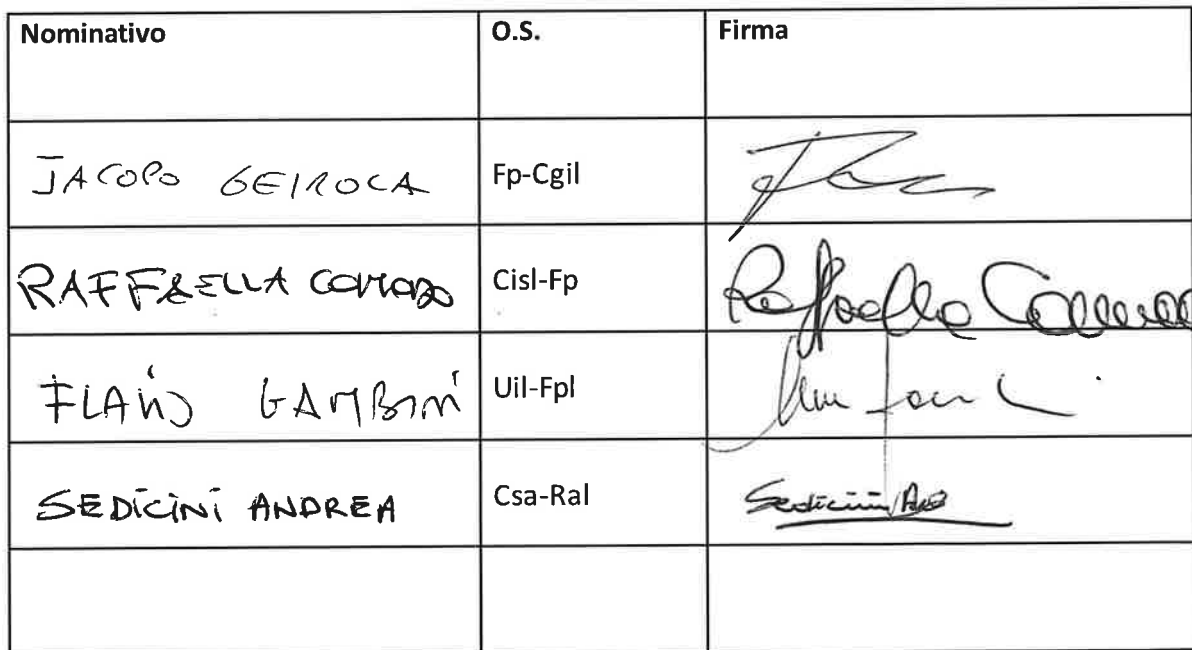 Nominativo O.S. Firma
JACOPO GEIROLA Fp-Cgil
RAFFAELLA Cisl-Fp Raffaella
FLAVIO GAMBINI Uil-Fpl
SEDICINI ANDREA Csa-Ral Sedicini